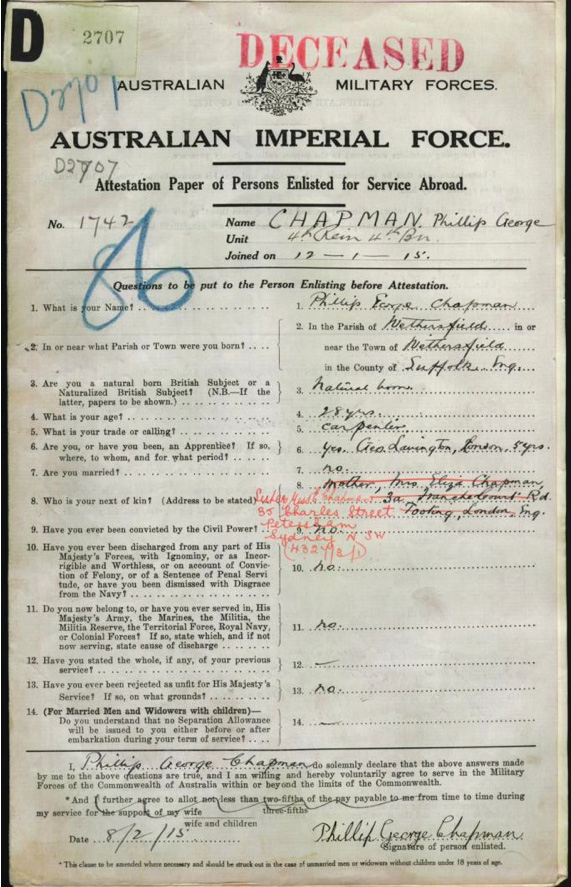 D 2707
DECEASED
D2701
AUSTRALIAN MILITARY FORCES.
AUSTRALIAN IMPERIAL FORCE.
D2707
Attestation Paper of Persons Enlisted for Service Abroad.
No. 1742
86
Name CHAPMAN, Phillip George
Unit 4th Rein 4th Bn.
Joined on 12-1-15.
Questions to be put to the Person Enlisting before Attestation.
1. What is your Name? .. ..
1. Phillip George Chapman
2. In or near what Parish or Town were you born? .. ..
2. In the Parish of Wethersfield in or
near the Town of Wethersfield
in the County of Suffolk Eng.
3. Are you a natural born British Subject or a
Naturalized British Subject? (N.B.—If the
latter, papers to be shown.) .. ..
3. Natural born
4. What is your age? .. ..
4. 28 yrs.
5. What is your trade or calling? .. ..
5. carpenter
6. Are you, or have you been, an Apprentice? If so,
where, to whom, and for what period? .. ..
6. yes. Geo. Lavington, London, 5 yrs.
7. Are you married? .. ..
7. no.
8. Who is your next of kin? (Address to be stated)
8. mother, Mrs Eliza Chapman,
3a Franche Court Rd.
Tooting, London, Eng.
35 Charles Street
Petersham
Sydney N SW
9. Have you ever been convicted by the Civil Power?
9. no.
10. Have you ever been discharged from any part of His
Majesty's Forces, with Ignominy, or as Incor-
rigible and Worthless, or on account of Convic-
tion of Felony, or of a Sentence of Penal Servi
tude, or have you been dismissed with Disgrace
from the Navy? .. ..
10. no.
11. Do you now belong to, or have you ever served in, His
Majesty's Army, the Marines, the Militia, the
Militia Reserve, the Territorial Force, Royal Navy,
or Colonial Forces? If so, state which, and if not
now serving, state cause of discharge .. ..
11. no.
12. Have you stated the whole, if any, of your previous
service? .. ..
12. —
13. Have you ever been rejected as unfit for His Majesty's
Service? If so, on what grounds? .. ..
13. no.
14. (For Married Men and Widowers with children)—
Do you understand that no Separation Allowance
will be issued to you either before or after
embarkation during your term of service? .. ..
14. —
I, Phillip George Chapman do solemnly declare that the above answers made
by me to the above questions are true, and I am willing and hereby voluntarily agree to serve in the Military
Forces of the Commonwealth of Australia within or beyond the limits of the Commonwealth.
*And I further agree to allot not less than two-fifths of the pay payable to me from time to time during
three-fifths
my service for the support of my wife
wife and children
Date 8/2/15
Phillip George Chapman
Signature of person enlisted.
* This clause to be amended where necessary and should be struck out in the case of unmarried men or widowers without children under 18 years of age.